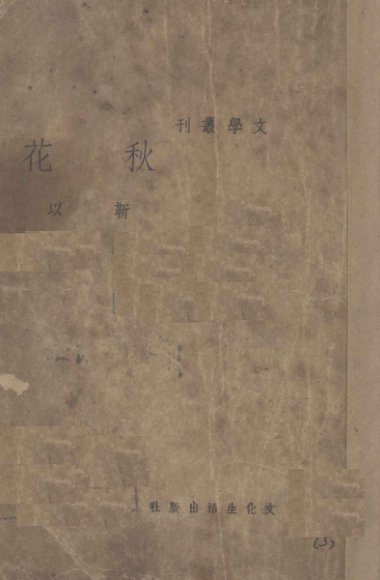 文學叢刊
秋花
靳以
文化生活出版社
(5)